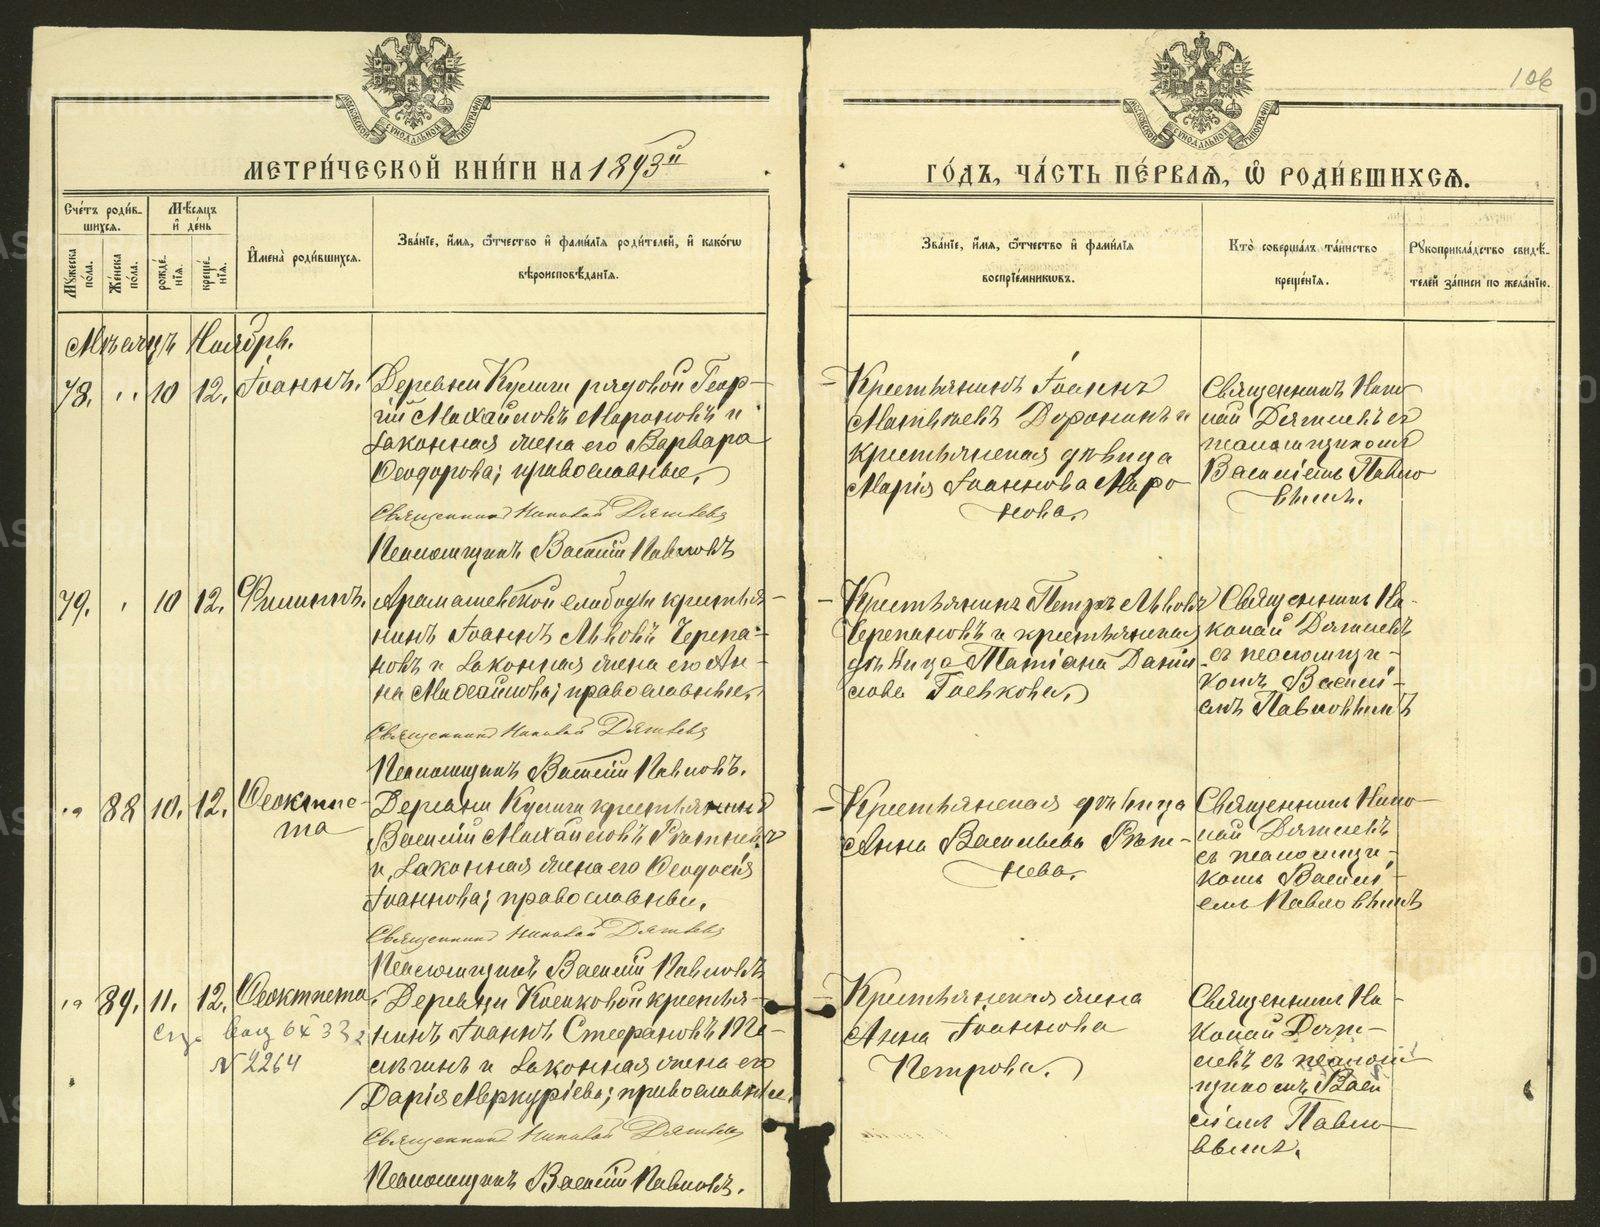 106
МОСКОВСКОЙ СѴНОДАЛЬНОЙ ТИПОГРАФІИ
МОСКОВСКОЙ СѴНОДАЛЬНОЙ ТИПОГРАФІИ
МЕТРИ́ЧЕСКОЙ КНИ́ГИ НА 1893й
ГО́ДЪ, ЧА́СТЬ ПЕ́РВАЯ, Ѽ РОДИ́ВШИХСЯ.
Сче́тъ роди́в-
шихся.
Мѣ́сяцъ
и҆ де́нь
Мꙋ́жеска по́ла.
Же́нска по́ла.
рожде́нїѧ.
креще́нїѧ.
И҆мена̀ роди́вшихся.
Зва́нїе, и҆́мя, ѻ҆́тчество и҆ фами́лїя роди́телей, и҆ како́гѡ
вѣроисповѣ́данїя.
Зва́нїе, и҆́мя, ѻ҆́тчество и҆ фами́лїя
воспрїе́мникѡвъ.
Кто̀ соверша́лъ та́инство
креще́нїя.
Рꙋкоприкла́дство свидѣ́-
телей за́писи по жела́нїю.
Мѣсяцъ Ноябрь.
78. " 10 12. Іоаннъ.
Деревни Кулиги рядовой Геор-
гій Михайловъ Мироновъ и
законная жена его Варвара
Ѳеодорова; православные.
Священникъ Николай Дягилевъ
Псаломщикъ Василій Павловъ
Крестьянинъ Іоаннъ
Матвѣевъ Доронинъ и
крестьянская дѣвица
Марія Іоаннова Миро
нова.
Священникъ Нико
лай Дягилевъ съ
псаломщикомъ
Василіемъ Павло
вымъ.
79. " 10 12. Филиппъ.
Арамашевской слободы крестья-
нинъ Іоаннъ Львовъ Черепа-
новъ и законная жена его Ан-
на Михайлова; православные.
Священникъ Николай Дягилевъ
Псаломщикъ Василій Павловъ.
Крестьянинъ Петръ Львовъ
Черепановъ и крестьянская
дѣвица Татіана Даніи
лова Гоевкова.
Священникъ Ни-
колай Дягилевъ
съ псаломщи-
комъ Васили-
емъ Павловымъ
" 88 10. 12. Ѳеоктис-
та
Деревни Кулиги крестьянинъ
Василій Михайловъ Рѣтневъ
и законная жена его Ѳеодосія
Іоаннова; православные.
Священникъ Николай Дягилевъ
Псаломщикъ Василій Павловъ
Крестьянская дѣвица
Анна Васильева Рѣт-
нева.
Священникъ Нико
лай Дягилевъ
съ псаломщи-
комъ Васили-
емъ Павловымъ
" 89. 11. 12. Ѳеоктиста.
N 2264
Деревни Косиковой крестья-
нинъ Іоаннъ Стефановъ Те-
лѣгинъ и законная жена его
Дарія Меркуріева; православные.
Священникъ Николай Дягилевъ
Псаломщикъ Василій Павловъ.
Крестьянская жена
Анна Іоаннова
Петрова.
Священникъ Ни-
колай Дяги-
левъ съ псалом
щикомъ Васи
ліемъ Павло-
вымъ.